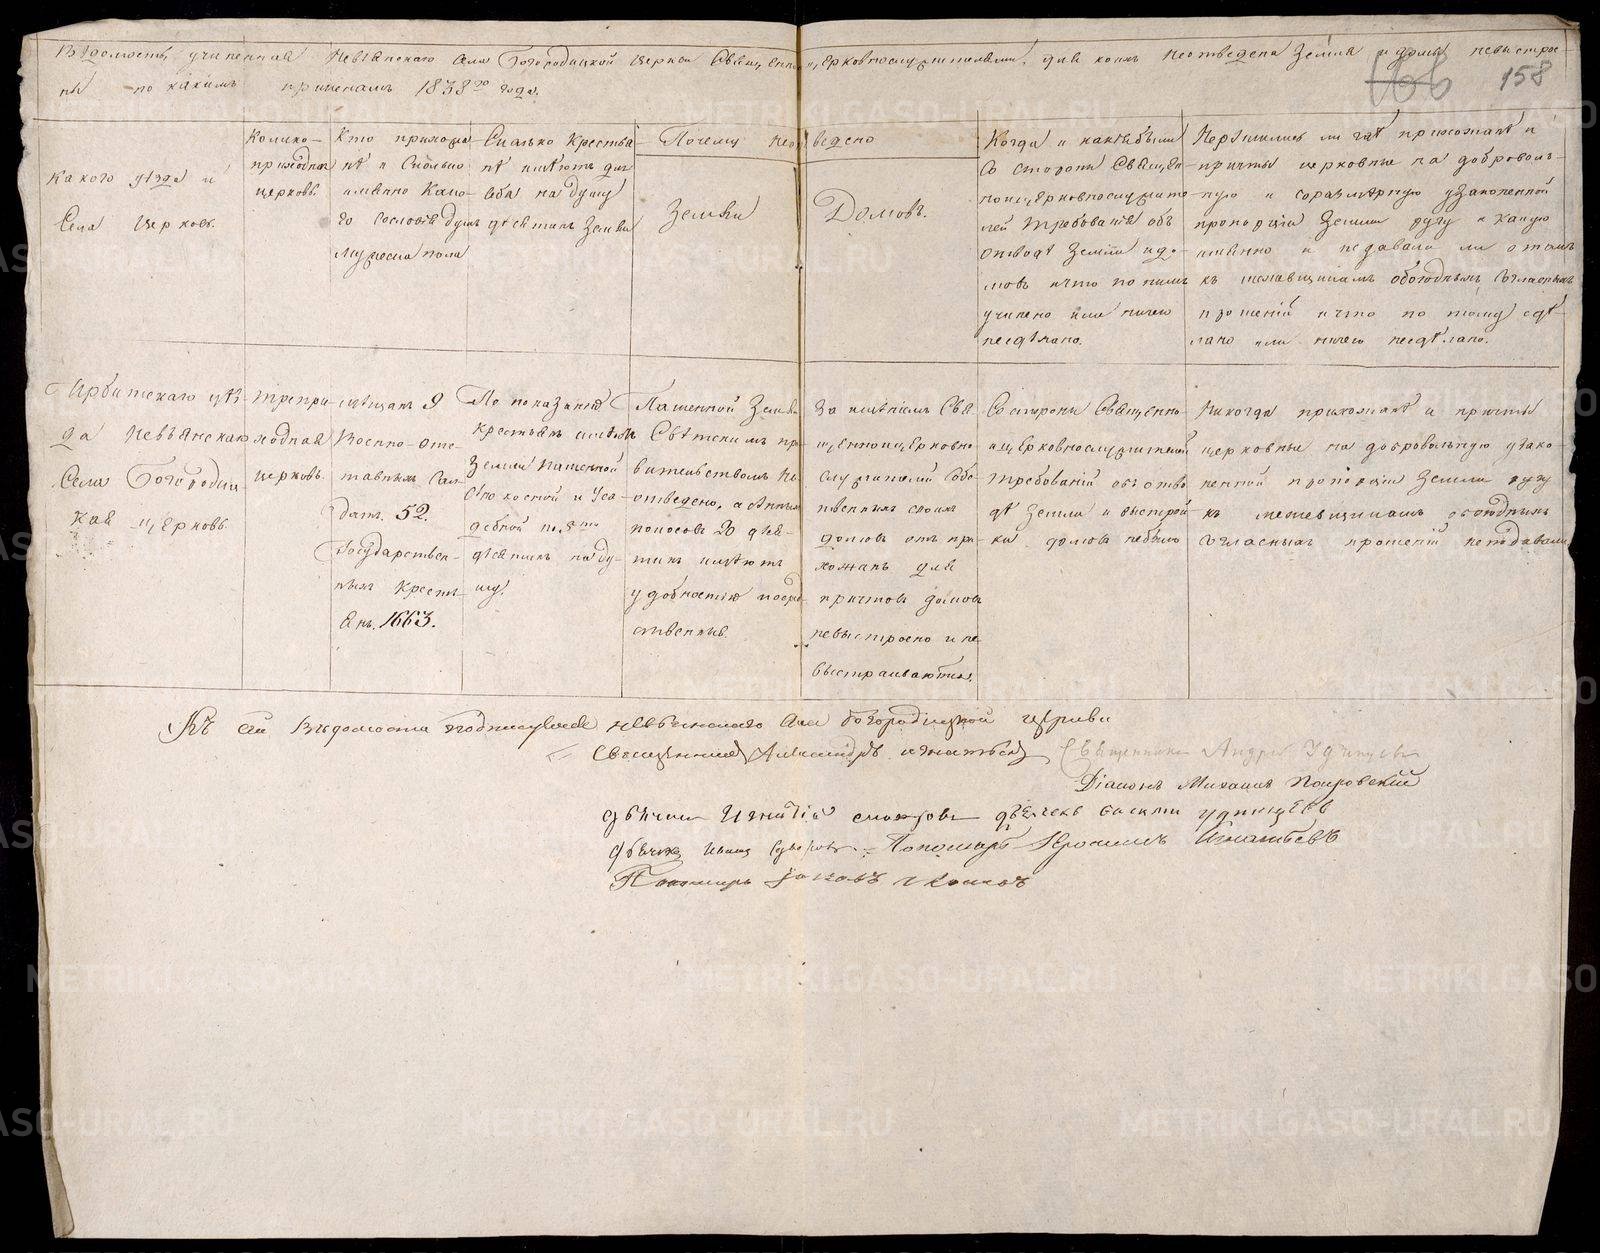 Вѣдомость, учиненная Невьянскаго села Богородицкой церкви Священно-церковнослужителями, для коихъ неотведена Земля и домы невыстрое-
ны по какимъ причинамъ 1838го года.
158
Какого уѣзда и
Села церковь.
Колико-
приходная
церковь.
Кто прихожа-
нѣ и Сколько
именно како-
го сословія душъ
мужеска пола
Сколько крестья-
нѣ имѣютъ для
себя на душу
десятинъ Земли
Почему неотведено
Земли
Домовъ.
Когда и какія были
со стороны Священ-
ноицерковнослужите-
лей требованія объ
отводѣ Земли и до-
мовъ и что по нимъ
учинено или ничего
несдѣлано.
Нерѣшились ли гдѣ прихожанѣ и
причты церковные на доброволь-
ную и соразмѣрную узаконенной
пропорціи Земли ругу и какую
именно и педавали ли о томъ
къ межевщикамъ обоюдныхъ согласныхъ
прошеній и что по тому сдѣ-
лано или ничего несдѣлано.
Ирбитскаго уѣз-
да Невьянскаго
Села Богородиц-
кая церковь.
Трепри-
ходная
церковь.
мѣщанъ 9
Военно-отс-
тавныхъ Сол-
датъ. 52.
Государствен-
ныхъ крестъ-
янъ. 1663.
По показанію
крестьянъ имѣютъ
Земли пашенной
сѣнокосной и Уса-
дебной по 8ми
десятинъ на ду-
шу.
Пашенной Земли
Свѣтскимъ пра-
вительствомъ не
отведено, а сѣнныхъ
покосовъ 20 деся-
тинъ имѣютъ
удобностію посред-
ственныя.
За имѣніемъ Свя-
щенноицерковно-
служителей Собс-
твенныхъ своихъ
домовъ отъ при-
хожанъ для
причтовъ домовъ
невыстроено и не
выстраиваются.
Состороны Священно-
ицерковнослужителей
требованій объ отво-
дѣ Земли и выстрой-
ки домовъ небыло
Никогда прихожанѣ и причты
церковные на добровольную узако-
ненной пропорціи Земли ругу
къ межевщикамъ обоюдныхъ
согласныхъ прошеній неподавали
Къ сей Вѣдомости подписуемся Невьянскаго села богородицкой церкви
Священникъ Александръ Игнатьевъ Священникъ Андрей Удинцевъ
Діаконъ Михаилъ Покровскій
дьячекъ Игнатій дьячекъ Василий Удинцевъ
дьячекъ Иванъ Пономарь Игнатьевъ
Пономарь Іаковъ
METRIKI.GASO-URAL.RU